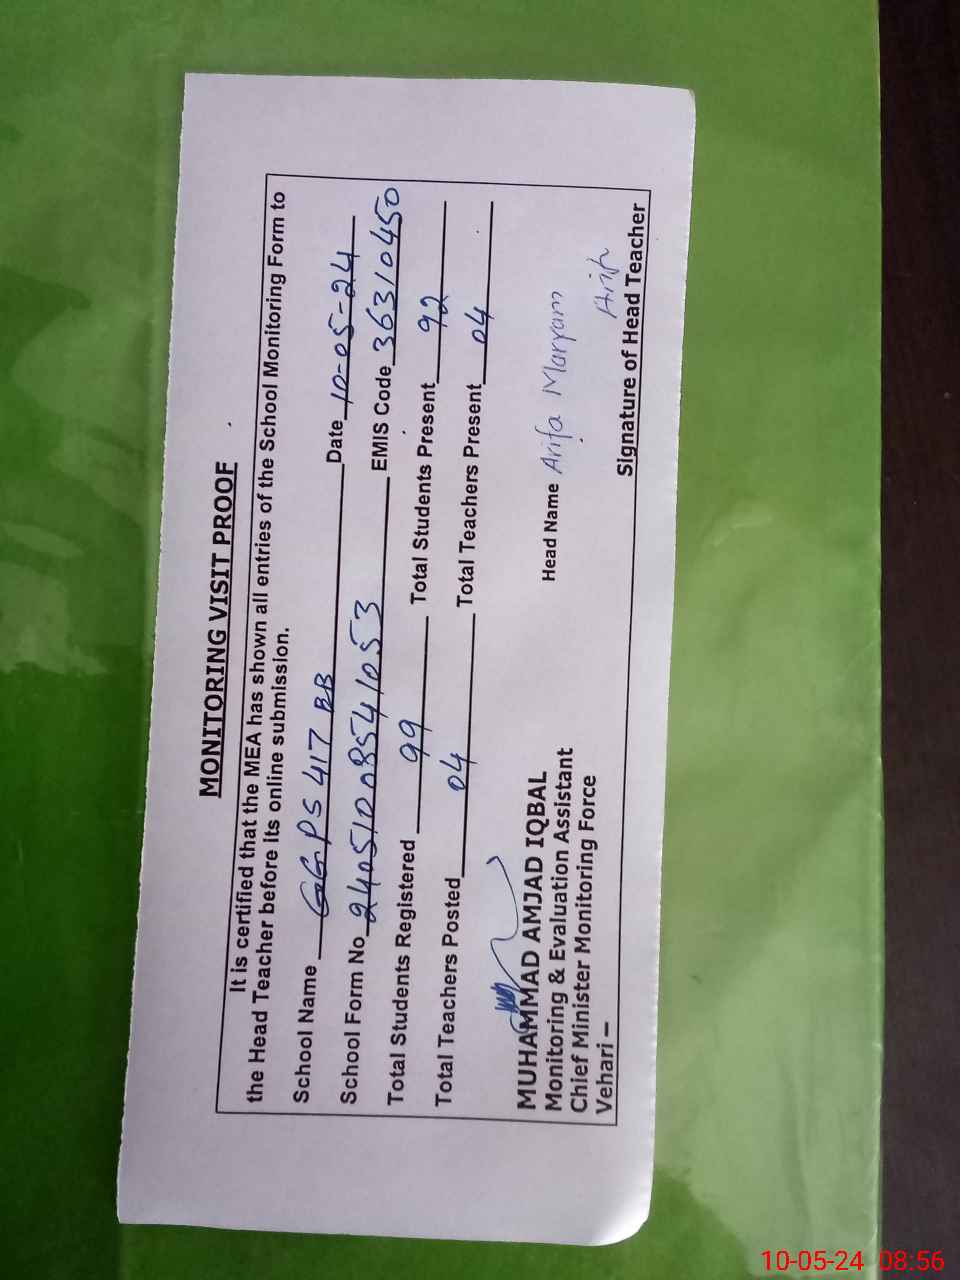 MONITORING VISIT PROOF
It is certified that the MEA has shown all entries of the School Monitoring Form to
the Head Teacher before its online submission.
School Name GGPS 417 EB Date 10-05-24
School Form No 24051008541053 EMIS Code 36310450
Total Students Registered 99 Total Students Present 92
Total Teachers Posted 04 Total Teachers Present 04
MUHAMMAD AMJAD IQBAL
Monitoring & Evaluation Assistant
Chief Minister Monitoring Force
Vehari –
Head Name Arifa Maryam
Signature of Head Teacher
10-05-24 08:56